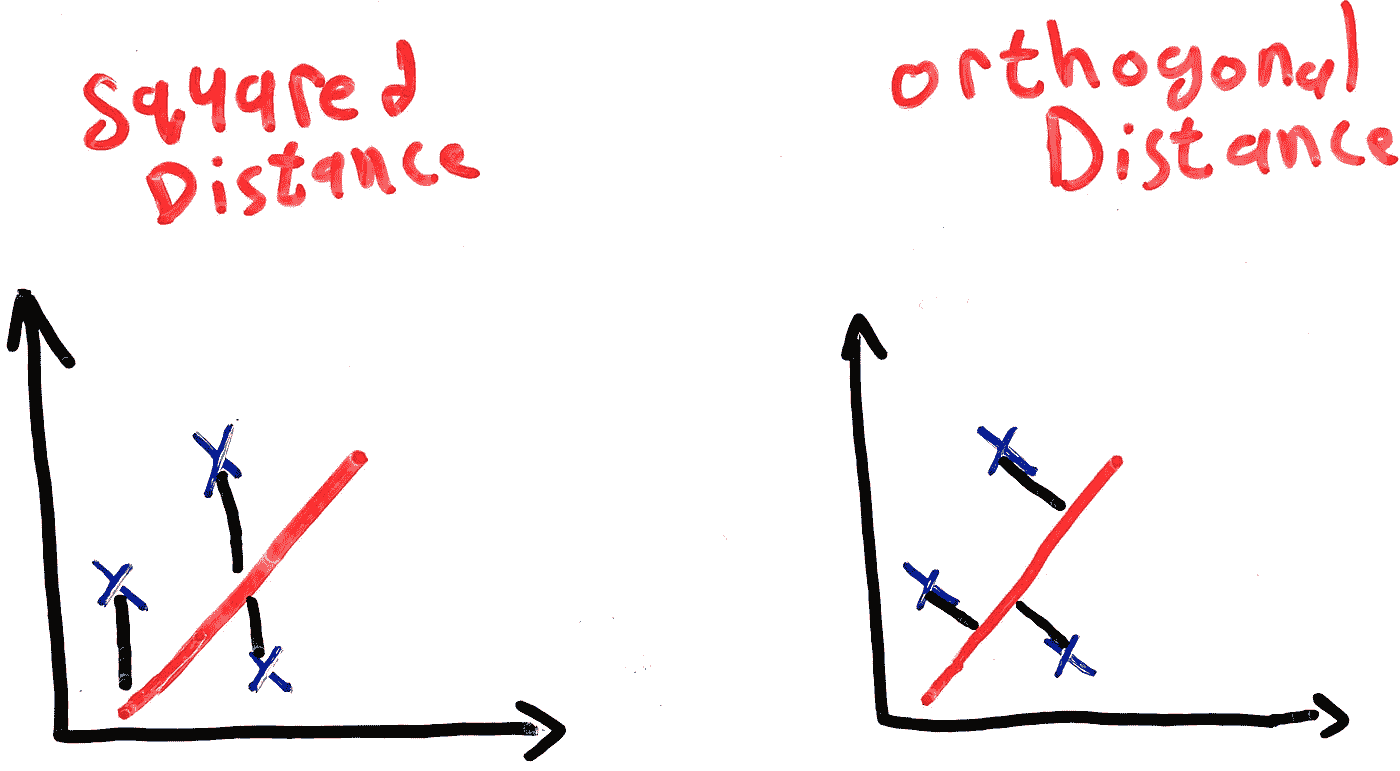 Squared
Distance
Orthogonal
Distance